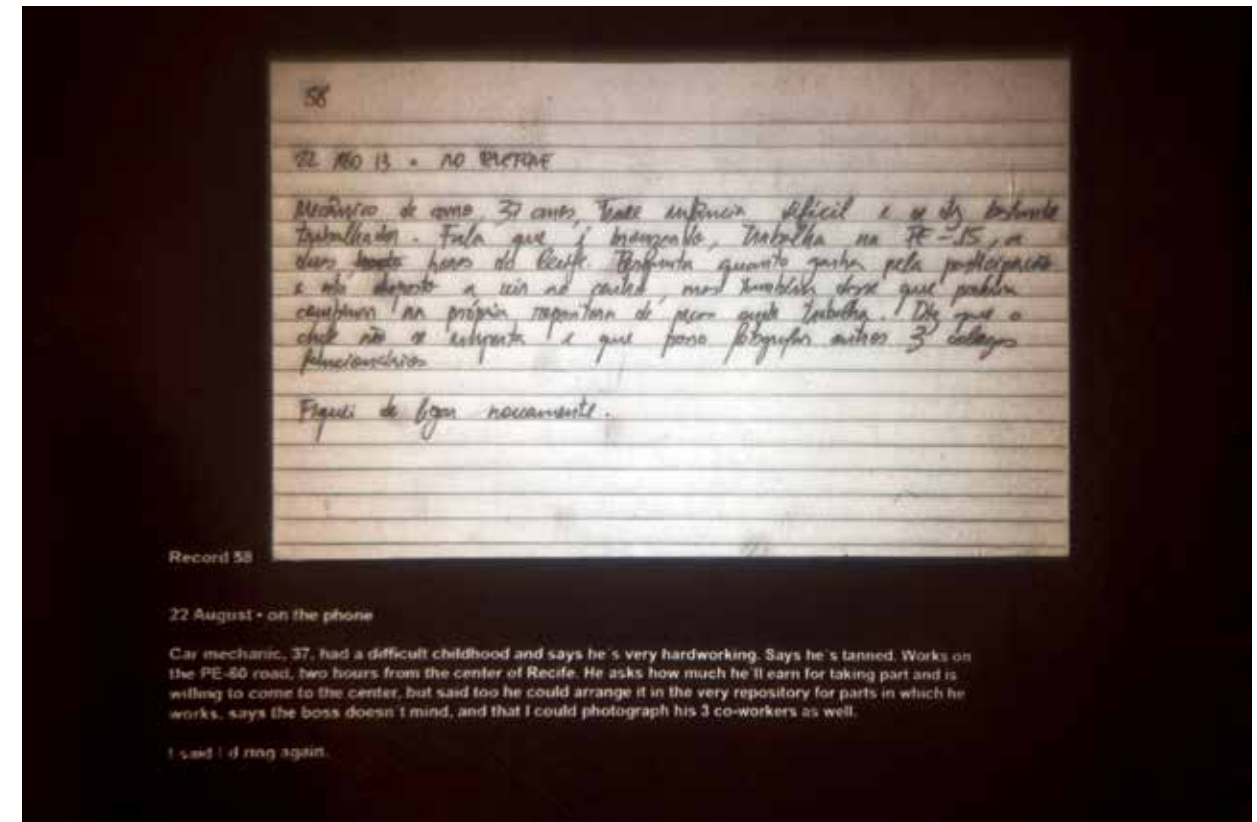 58
22 AGO 13 • NO TELEFONE
Mecânico de carro, 37 anos, Teve infância difícil e se diz bastante
trabalhador. Fala que é bronzeado, Trabalha na PE-15, a
duas horas do Recife. Pergunta quanto ganha pela participação
e está disposto a vir ao centro, mas também disse que podia
combinar na própria repositora de peças onde trabalha. Diz que o
chefe não se importa e que posso fotografar outros 3 colegas
funcionários
Fiquei de ligar novamente.
Record 58
22 August • on the phone
Car mechanic, 37, had a difficult childhood and says he's very hardworking. Says he's tanned. Works on
the PE-60 road, two hours from the center of Recife. He asks how much he'll earn for taking part and is
willing to come to the center, but said too he could arrange it in the very repository for parts in which he
works, says the boss doesn't mind, and that I could photograph his 3 co-workers as well.
I said I'd ring again.